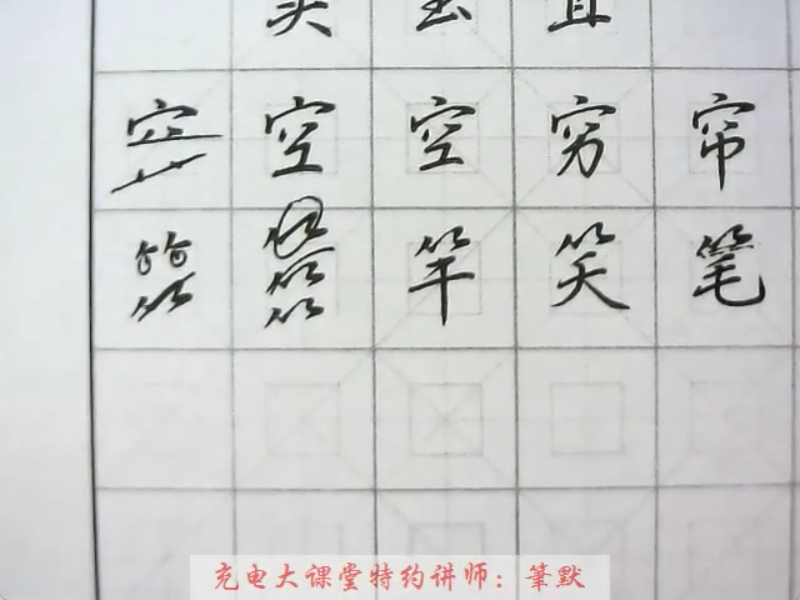 空 空 穷 帘
竿 笑 笔
充电大课堂特约讲师：筆默